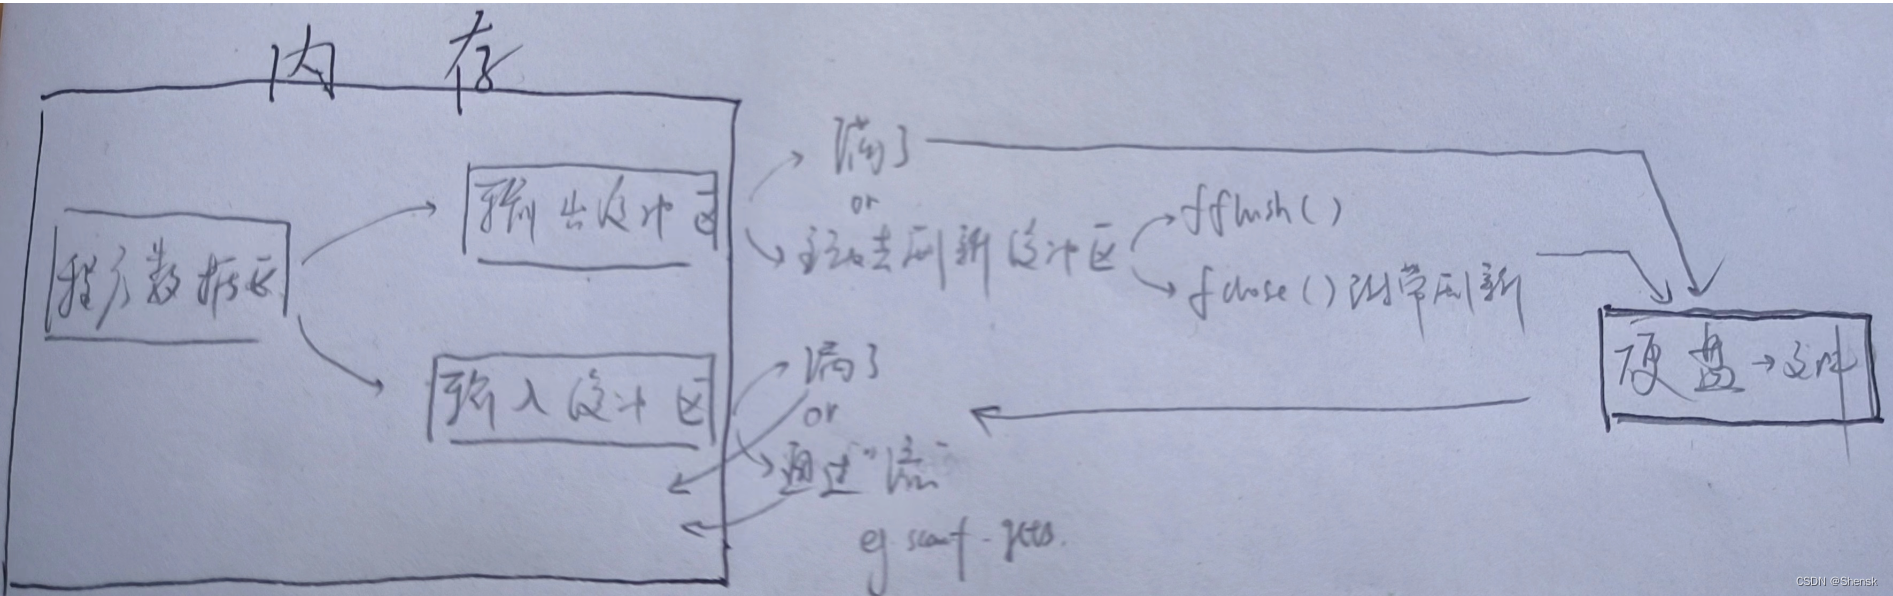 内 存
满了
输出缓冲区
or
fflush()
程序数据区
主动去刷新缓冲区
fclose()
刷新
满了
硬盘→文件
输入缓冲区
or
通过“流”
eg scanf - gets.
CSDN @Shensk